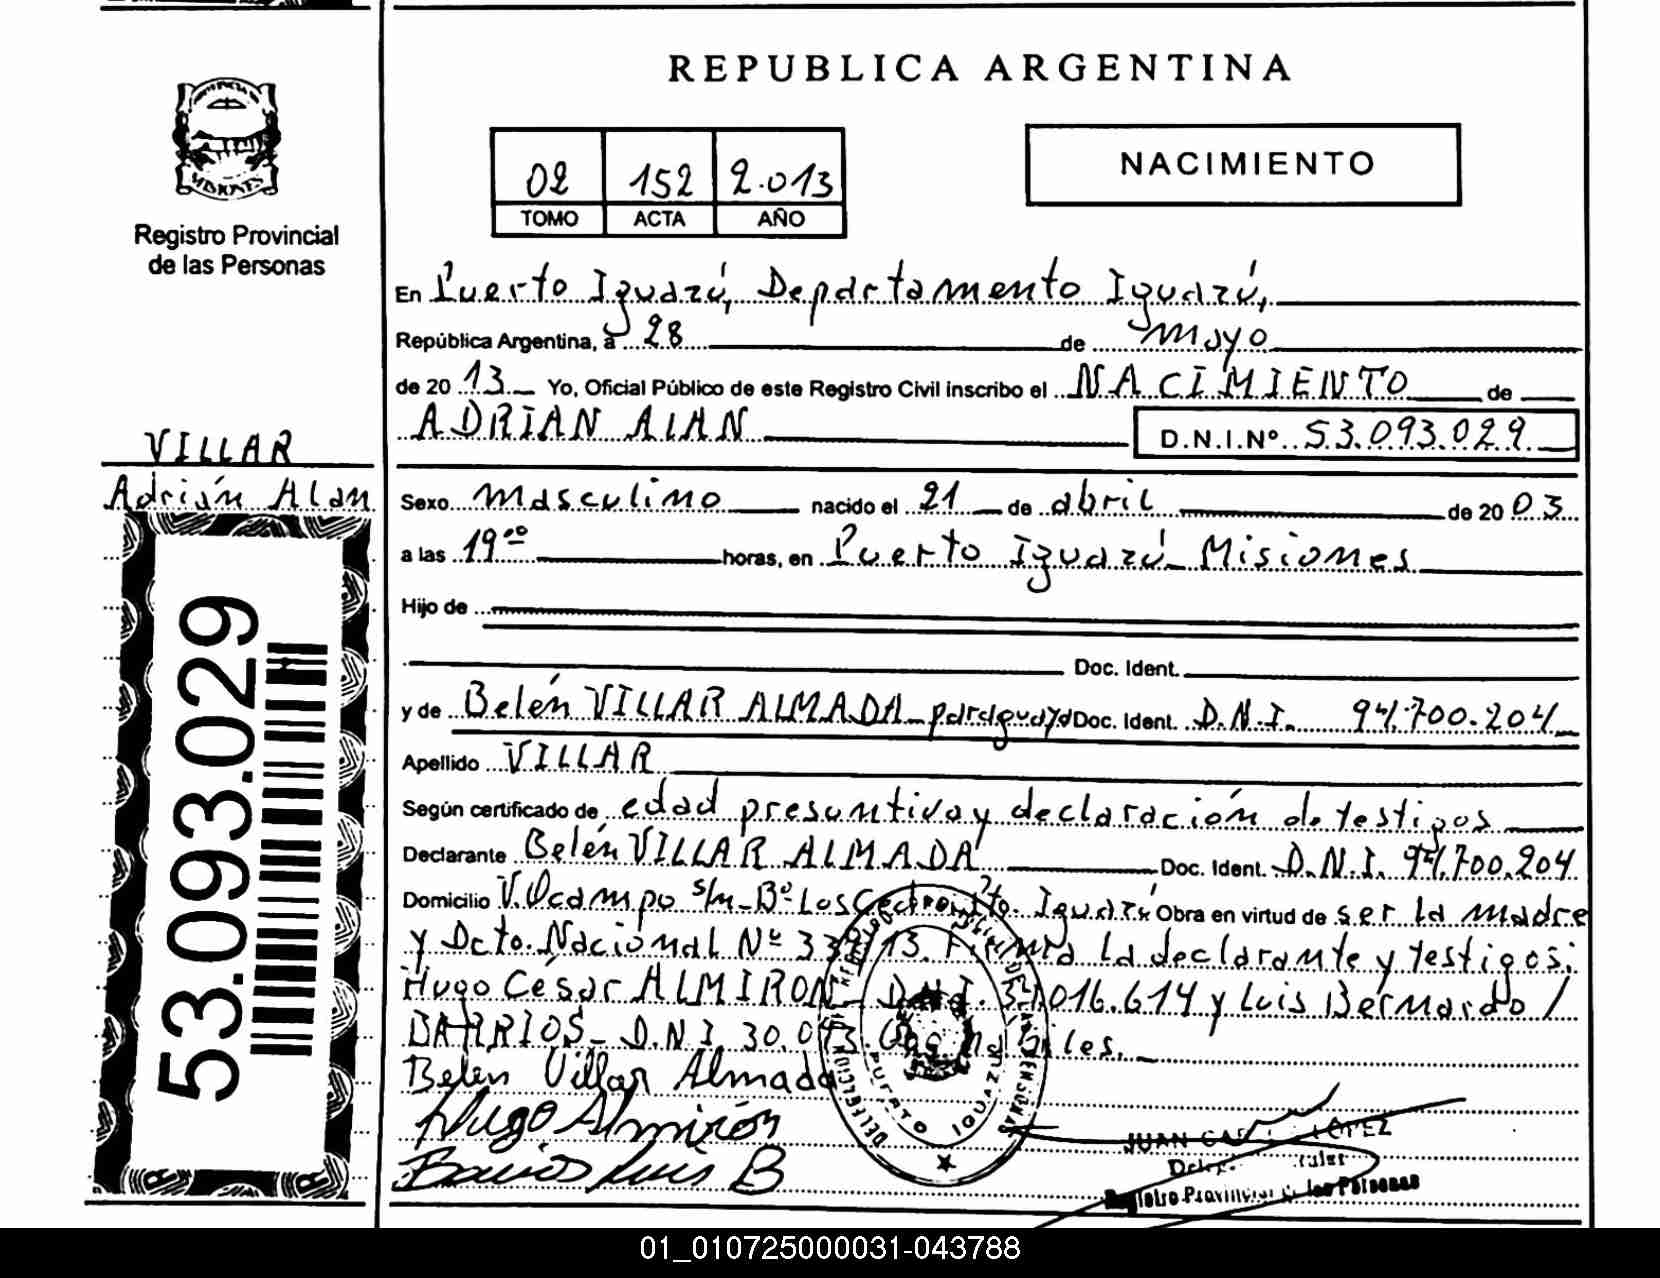 REPUBLICA ARGENTINA
PROVINCIA DE
MISIONES
Registro Provincial
de las Personas
02 152 2.013
TOMO ACTA AÑO
NACIMIENTO
En Puerto Iguazú, Departamento Iguazú,
República Argentina, a 28 de mayo
de 20 13 Yo, Oficial Público de este Registro Civil inscribo el NACIMIENTO de
ADRIAN ALAN D.N.I.Nº 53.093.029
VILLAR
Adrián Alan
53.093.029
Sexo masculino nacido el 21 de abril de 20 03
a las 19ºº horas, en Puerto Iguazú Misiones
Hijo de
Doc. Ident.
y de Belén VILLAR ALMADA paraguaya Doc. Ident. D.N.I. 94.700.204
Apellido VILLAR
Según certificado de edad presuntiva y declaración de testigos
Declarante Belén VILLAR ALMADA Doc. Ident. D.N.I. 94.700.204
Domicilio V. Ocampo s/n-Bº Los Pto. Iguazú Obra en virtud de ser la madre
y Dcto. Nacional Nº 339/13. Firma la declarante y testigos:
Hugo César ALMIRON D.N.I. .016.614 y Luis Bernardo /
BARRIOS D.N.I. 30.
Belen Villar Almada
Hugo Almirón
Barrios Luis B
PUERTO IGUAZU
JUAN LOPEZ
Registro Provincial de las Personas
01_010725000031-043788